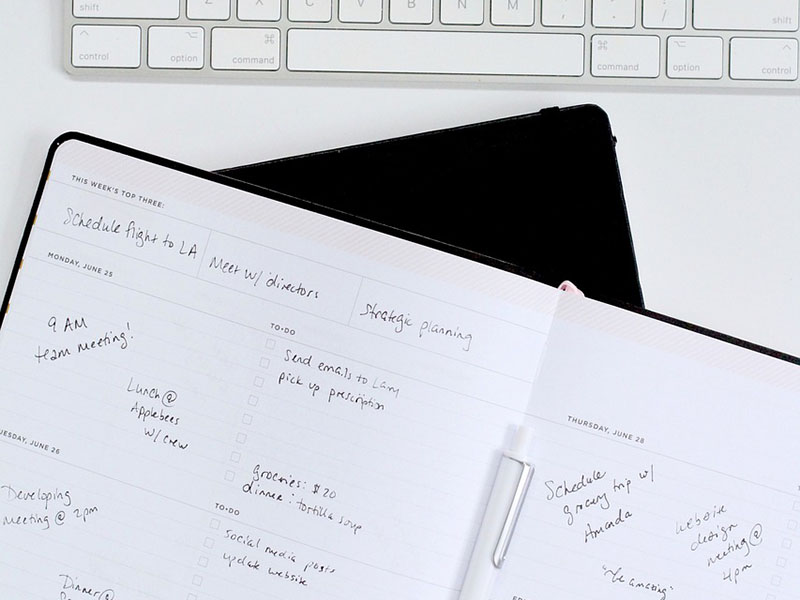 shift
Z X C V B N M
shift
control
option
command
command
option
control
THIS WEEK'S TOP THREE:
Schedule flight to LA
Meet w/ directors
Strategic planning
MONDAY, JUNE 25
9 AM
team meeting!
Lunch @
Applebees
w/ crew
TO-DO
Send emails to Larry
pick up prescription
groceries: $20
dinner: tortilla soup
TUESDAY, JUNE 26
Developing
meeting @ 2pm
Dinner @
TO-DO
social media posts
update website
THURSDAY, JUNE 28
Schedule
grocery trip w/
Amanda
website
design
meeting @
4pm
"be amazing"